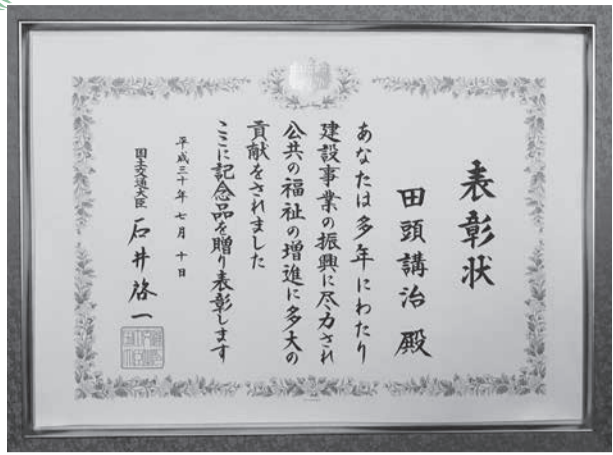 表彰状
田頭講治 殿
あなたは多年にわたり
建設事業の振興に尽力され
公共の福祉の増進に多大の
貢献をされました
ここに記念品を贈り表彰します
平成三十年七月十日
国土交通大臣 石井啓一